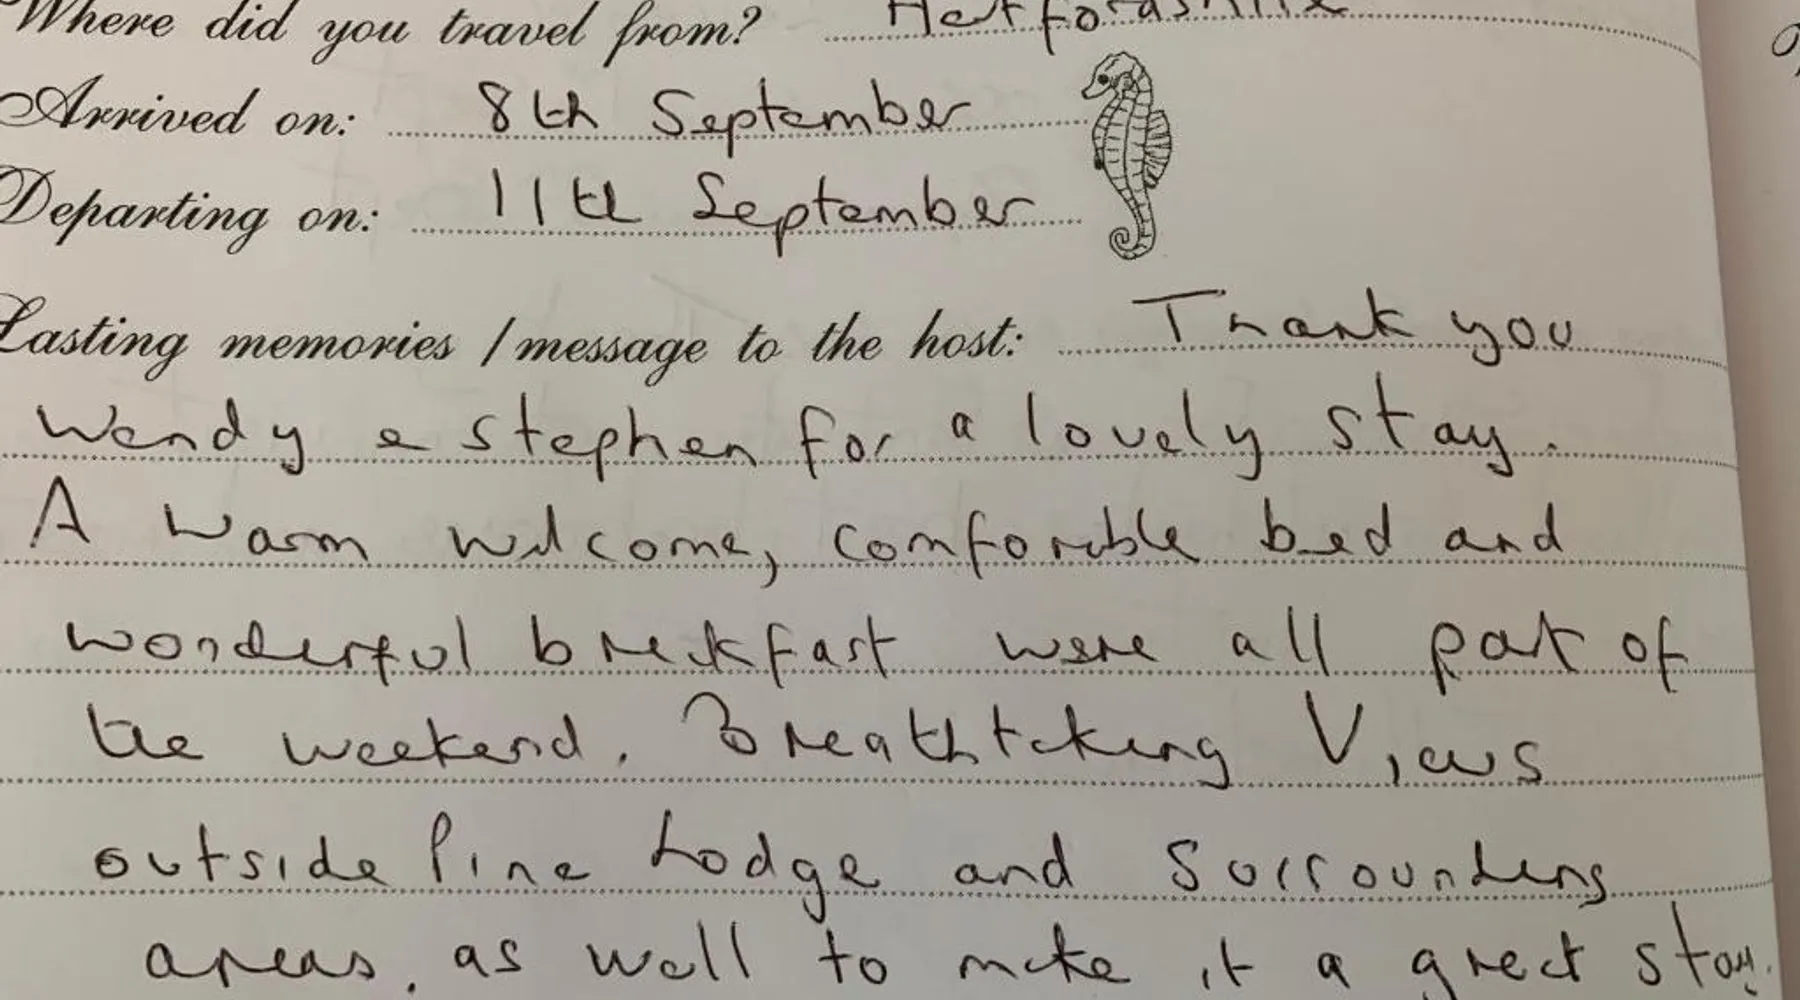 Where did you travel from? Hertfordshire
Arrived on: 8th September
Departing on: 11th September
Lasting memories / message to the host: Thank you
Wendy & Stephen for a lovely stay.
A warm welcome, comforable bed and
wonderful breakfast were all part of
the weekend. Breathtaking Views
outside Pine Lodge and Surrounding
areas. as well to make it a great stay.